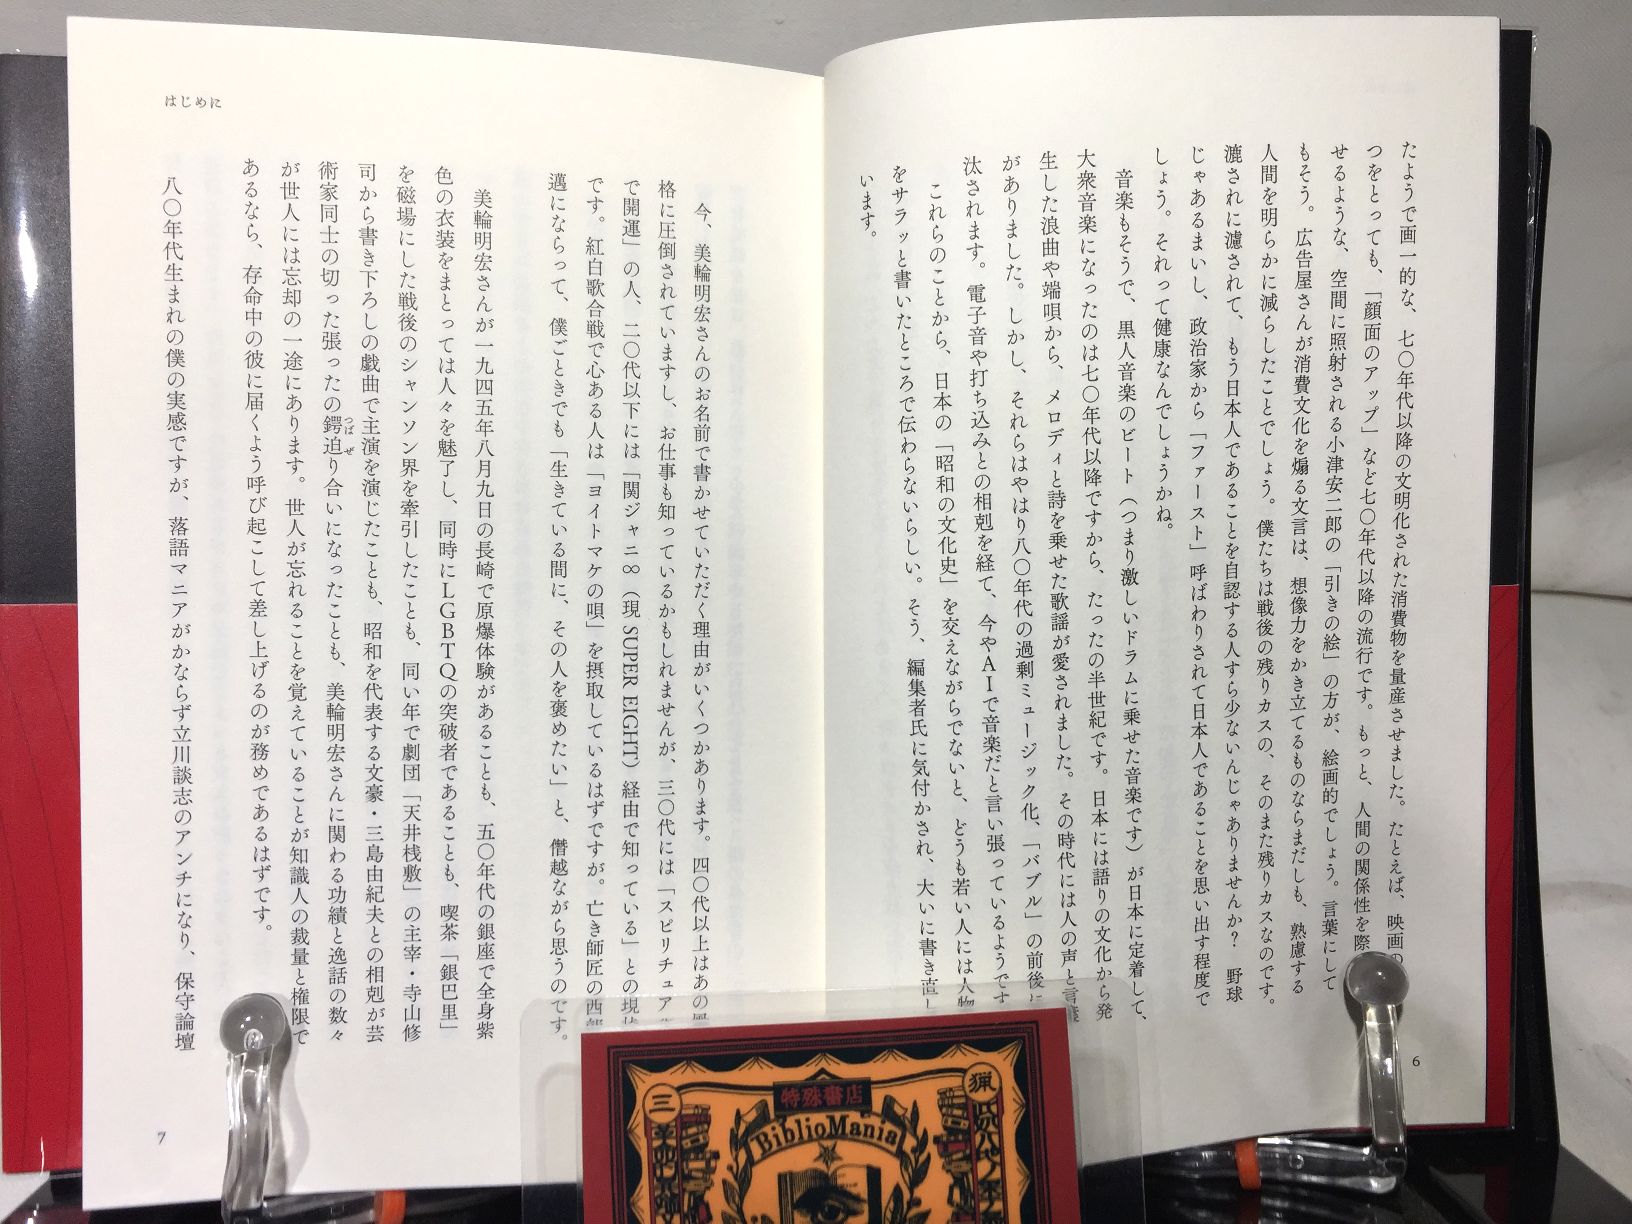 たようで画一的な、七〇年代以降の文明化された消費物を量産させました。たとえば、映画の
つをとっても、「顔面のアップ」など七〇年代以降の流行です。もっと、人間の関係性を際
せるような、空間に照射される小津安二郎の「引きの絵」の方が、絵画的でしょう。言葉にして
もそう。広告屋さんが消費文化を煽る文言は、想像力をかき立てるものならまだしも、熟慮する
人間を明らかに減らしたことでしょう。僕たちは戦後の残りカスの、そのまた残りカスなのです。
漉されに濾されて、もう日本人であることを自認する人すら少ないんじゃありませんか?　野球
じゃあるまいし、政治家から「ファースト」呼ばわりされて日本人であることを思い出す程度で
しょう。それって健康なんでしょうかね。
音楽もそうで、黒人音楽のビート（つまり激しいドラムに乗せた音楽です）が日本に定着して、
大衆音楽になったのは七〇年代以降ですから、たったの半世紀です。日本には語りの文化から発
生した浪曲や端唄から、メロディと詩を乗せた歌謡が愛されました。その時代には人の声と言葉
がありました。しかし、それらはやはり八〇年代の過剰ミュージック化、「バブル」の前後に
汰されます。電子音や打ち込みとの相剋を経て、今やAIで音楽だと言い張っているようです
これらのことから、日本の「昭和の文化史」を交えながらでないと、どうも若い人には人物
をサラッと書いたところで伝わらないらしい。そう、編集者氏に気付かされ、大いに書き直し
います。
6
はじめに
今、美輪明宏さんのお名前で書かせていただく理由がいくつかあります。四〇代以上はあの風
格に圧倒されていますし、お仕事も知っているかもしれませんが、三〇代には「スピリチュア
で開運」の人、二〇代以下には「関ジャニ∞（現SUPER EIGHT）経由で知っている」との現状
です。紅白歌合戦で心ある人は「ヨイトマケの唄」を摂取しているはずですが。亡き師匠の西部
邁にならって、僕ごときでも「生きている間に、その人を褒めたい」と、僭越ながら思うのです。
美輪明宏さんが一九四五年八月九日の長崎で原爆体験があることも、五〇年代の銀座で全身紫
色の衣装をまとっては人々を魅了し、同時にLGBTQの突破者であることも、喫茶「銀巴里」
を磁場にした戦後のシャンソン界を牽引したことも、同い年で劇団「天井桟敷」の主宰・寺山修
司から書き下ろしの戯曲で主演を演じたことも、昭和を代表する文豪・三島由紀夫との相剋が芸
術家同士の切った張ったの鍔迫り合いになったことも、美輪明宏さんに関わる功績と逸話の数々
つばぜ
が世人には忘却の一途にあります。世人が忘れることを覚えていることが知識人の裁量と権限で
あるなら、存命中の彼に届くよう呼び起こして差し上げるのが務めであるはずです。
八〇年代生まれの僕の実感ですが、落語マニアがかならず立川談志のアンチになり、保守論壇
7
特殊書店
BiblioMania
三
猟